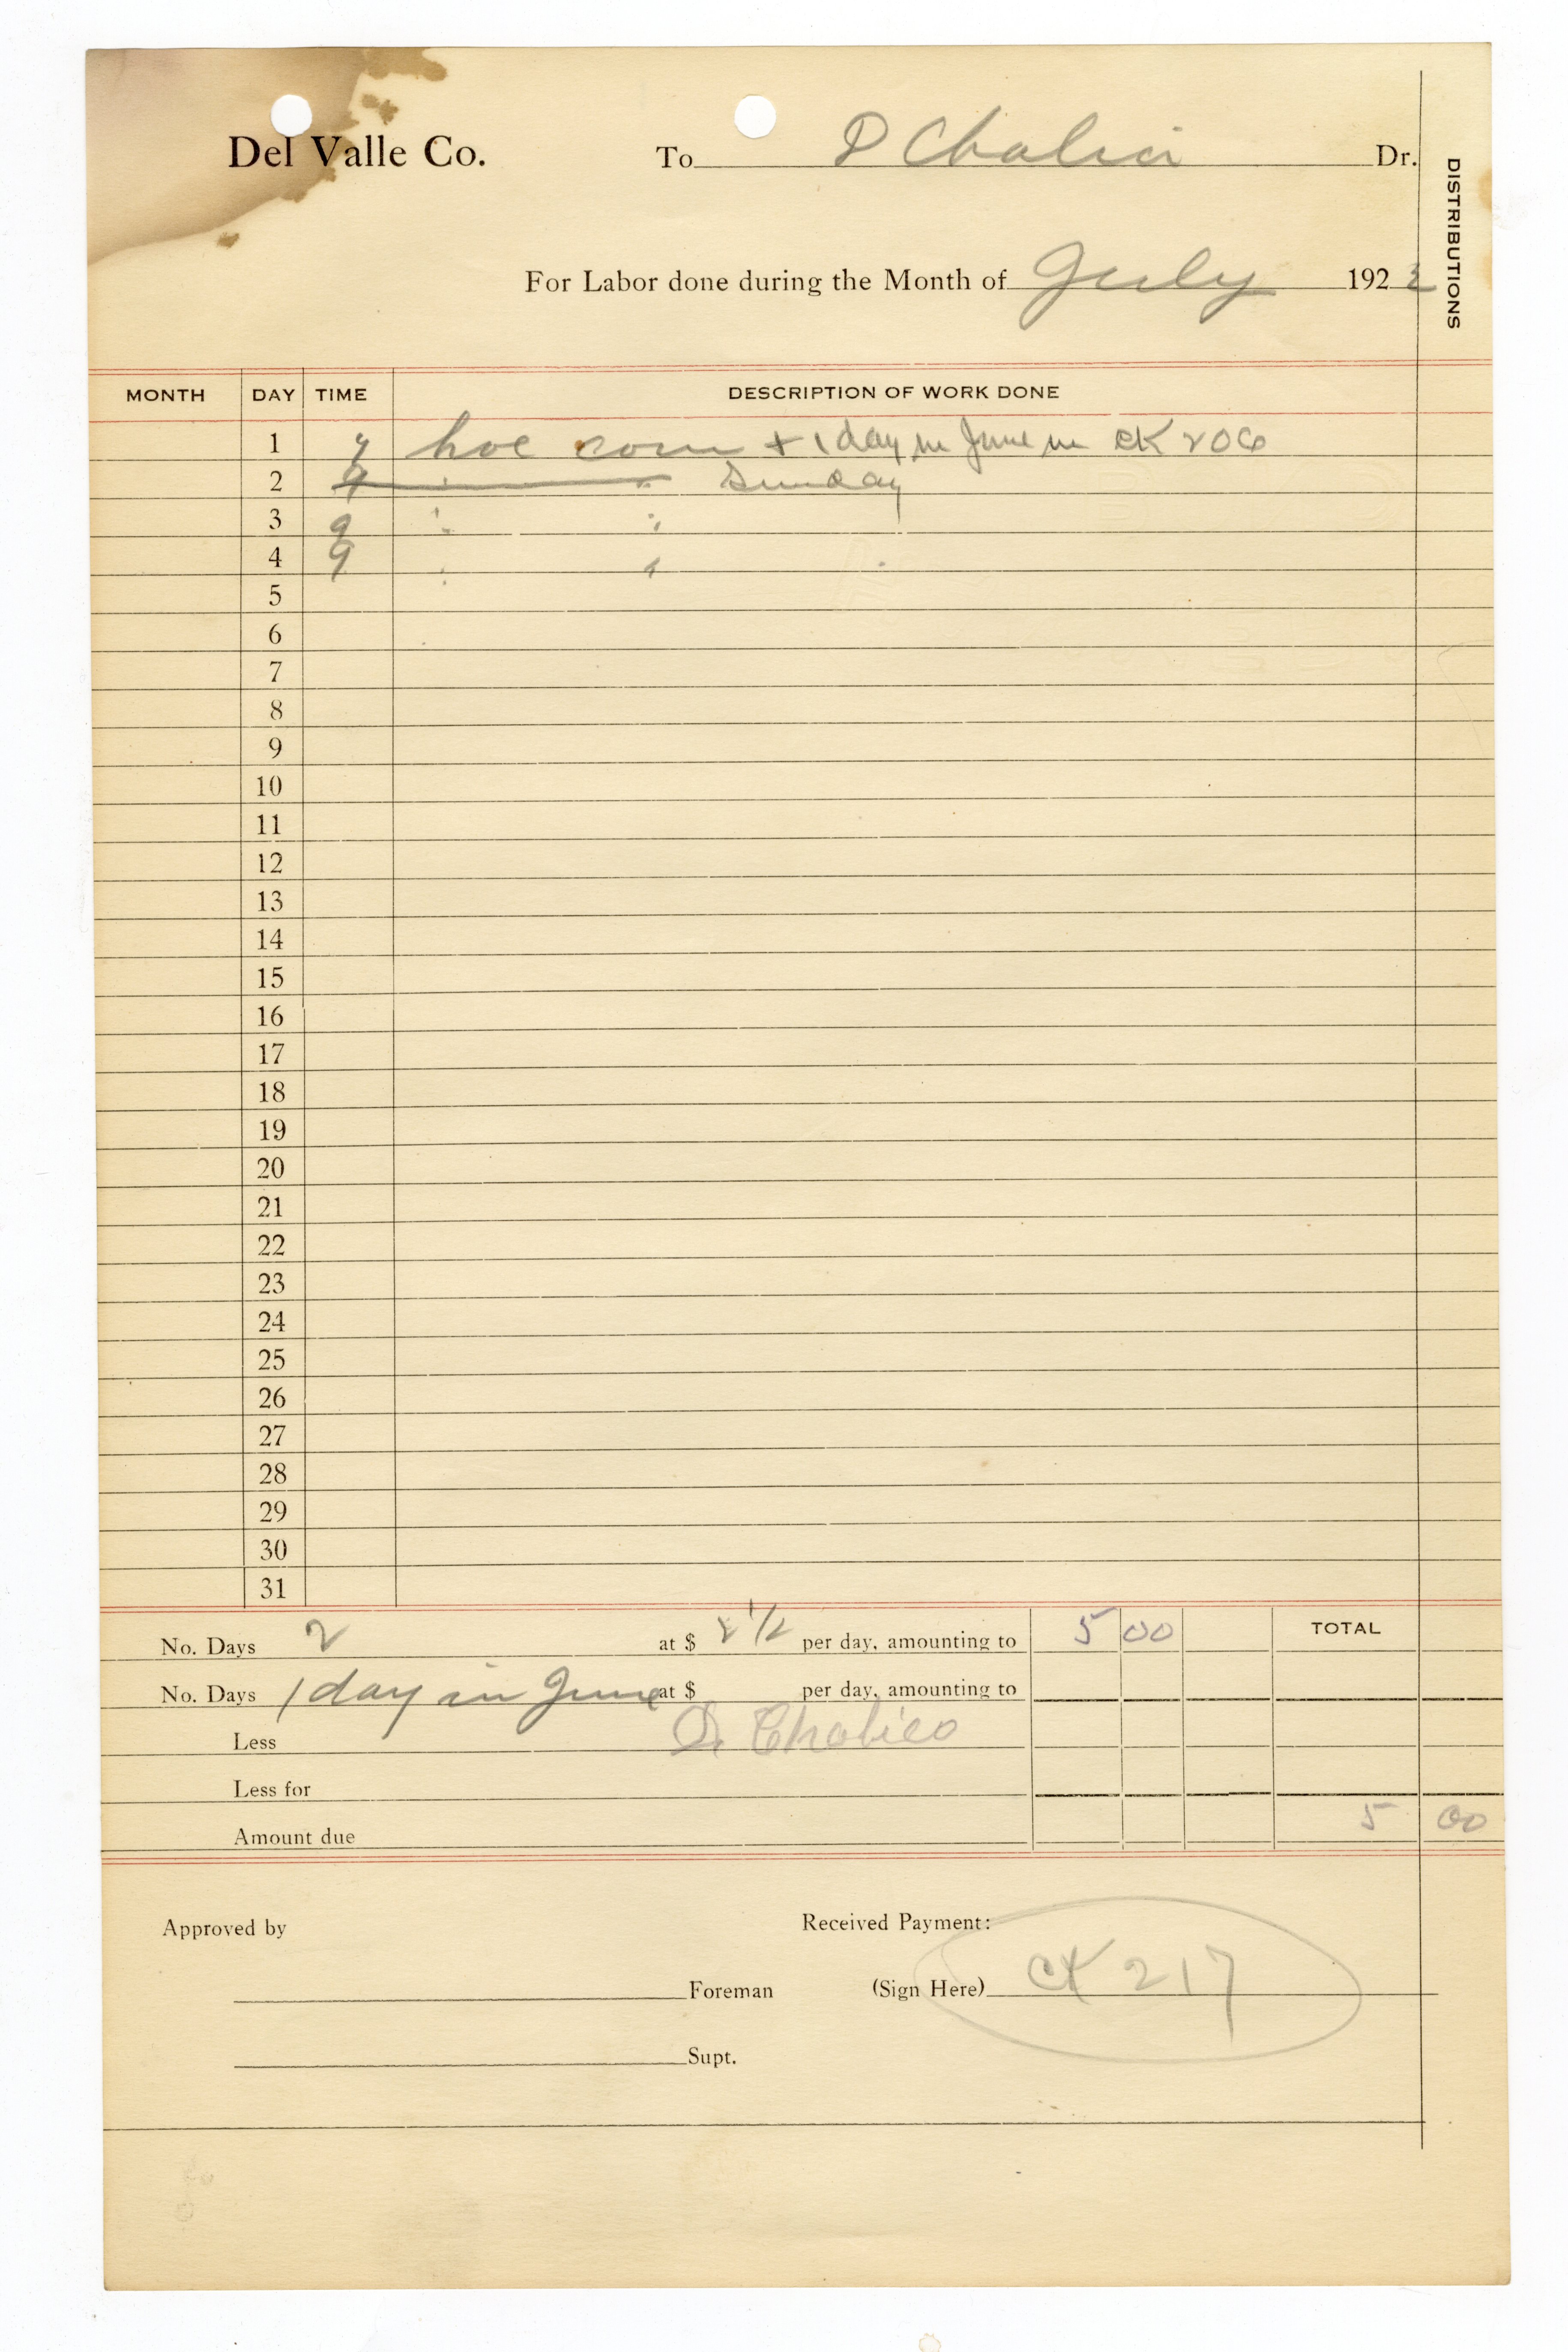 Del Valle Co. To P Chalia Dr.
DISTRIBUTIONS
For Labor done during the Month of July 192
MONTH DAY TIME DESCRIPTION OF WORK DONE
1 9 hoe corn + 1 day in June in CK 206
2 9 " " Sunday
3 9 " "
4 9 " "
5
6
7
8
9
10
11
12
13
14
15
16
17
18
19
20
21
22
23
24
25
26
27
28
29
30
31
No. Days 2 at $ 2 1/2 per day, amounting to 5 00 TOTAL
No. Days 1 day in June at $ per day, amounting to
Less Chalico
Less for
Amount due 5 00
Approved by Received Payment:
Foreman (Sign Here) CK 217
Supt.